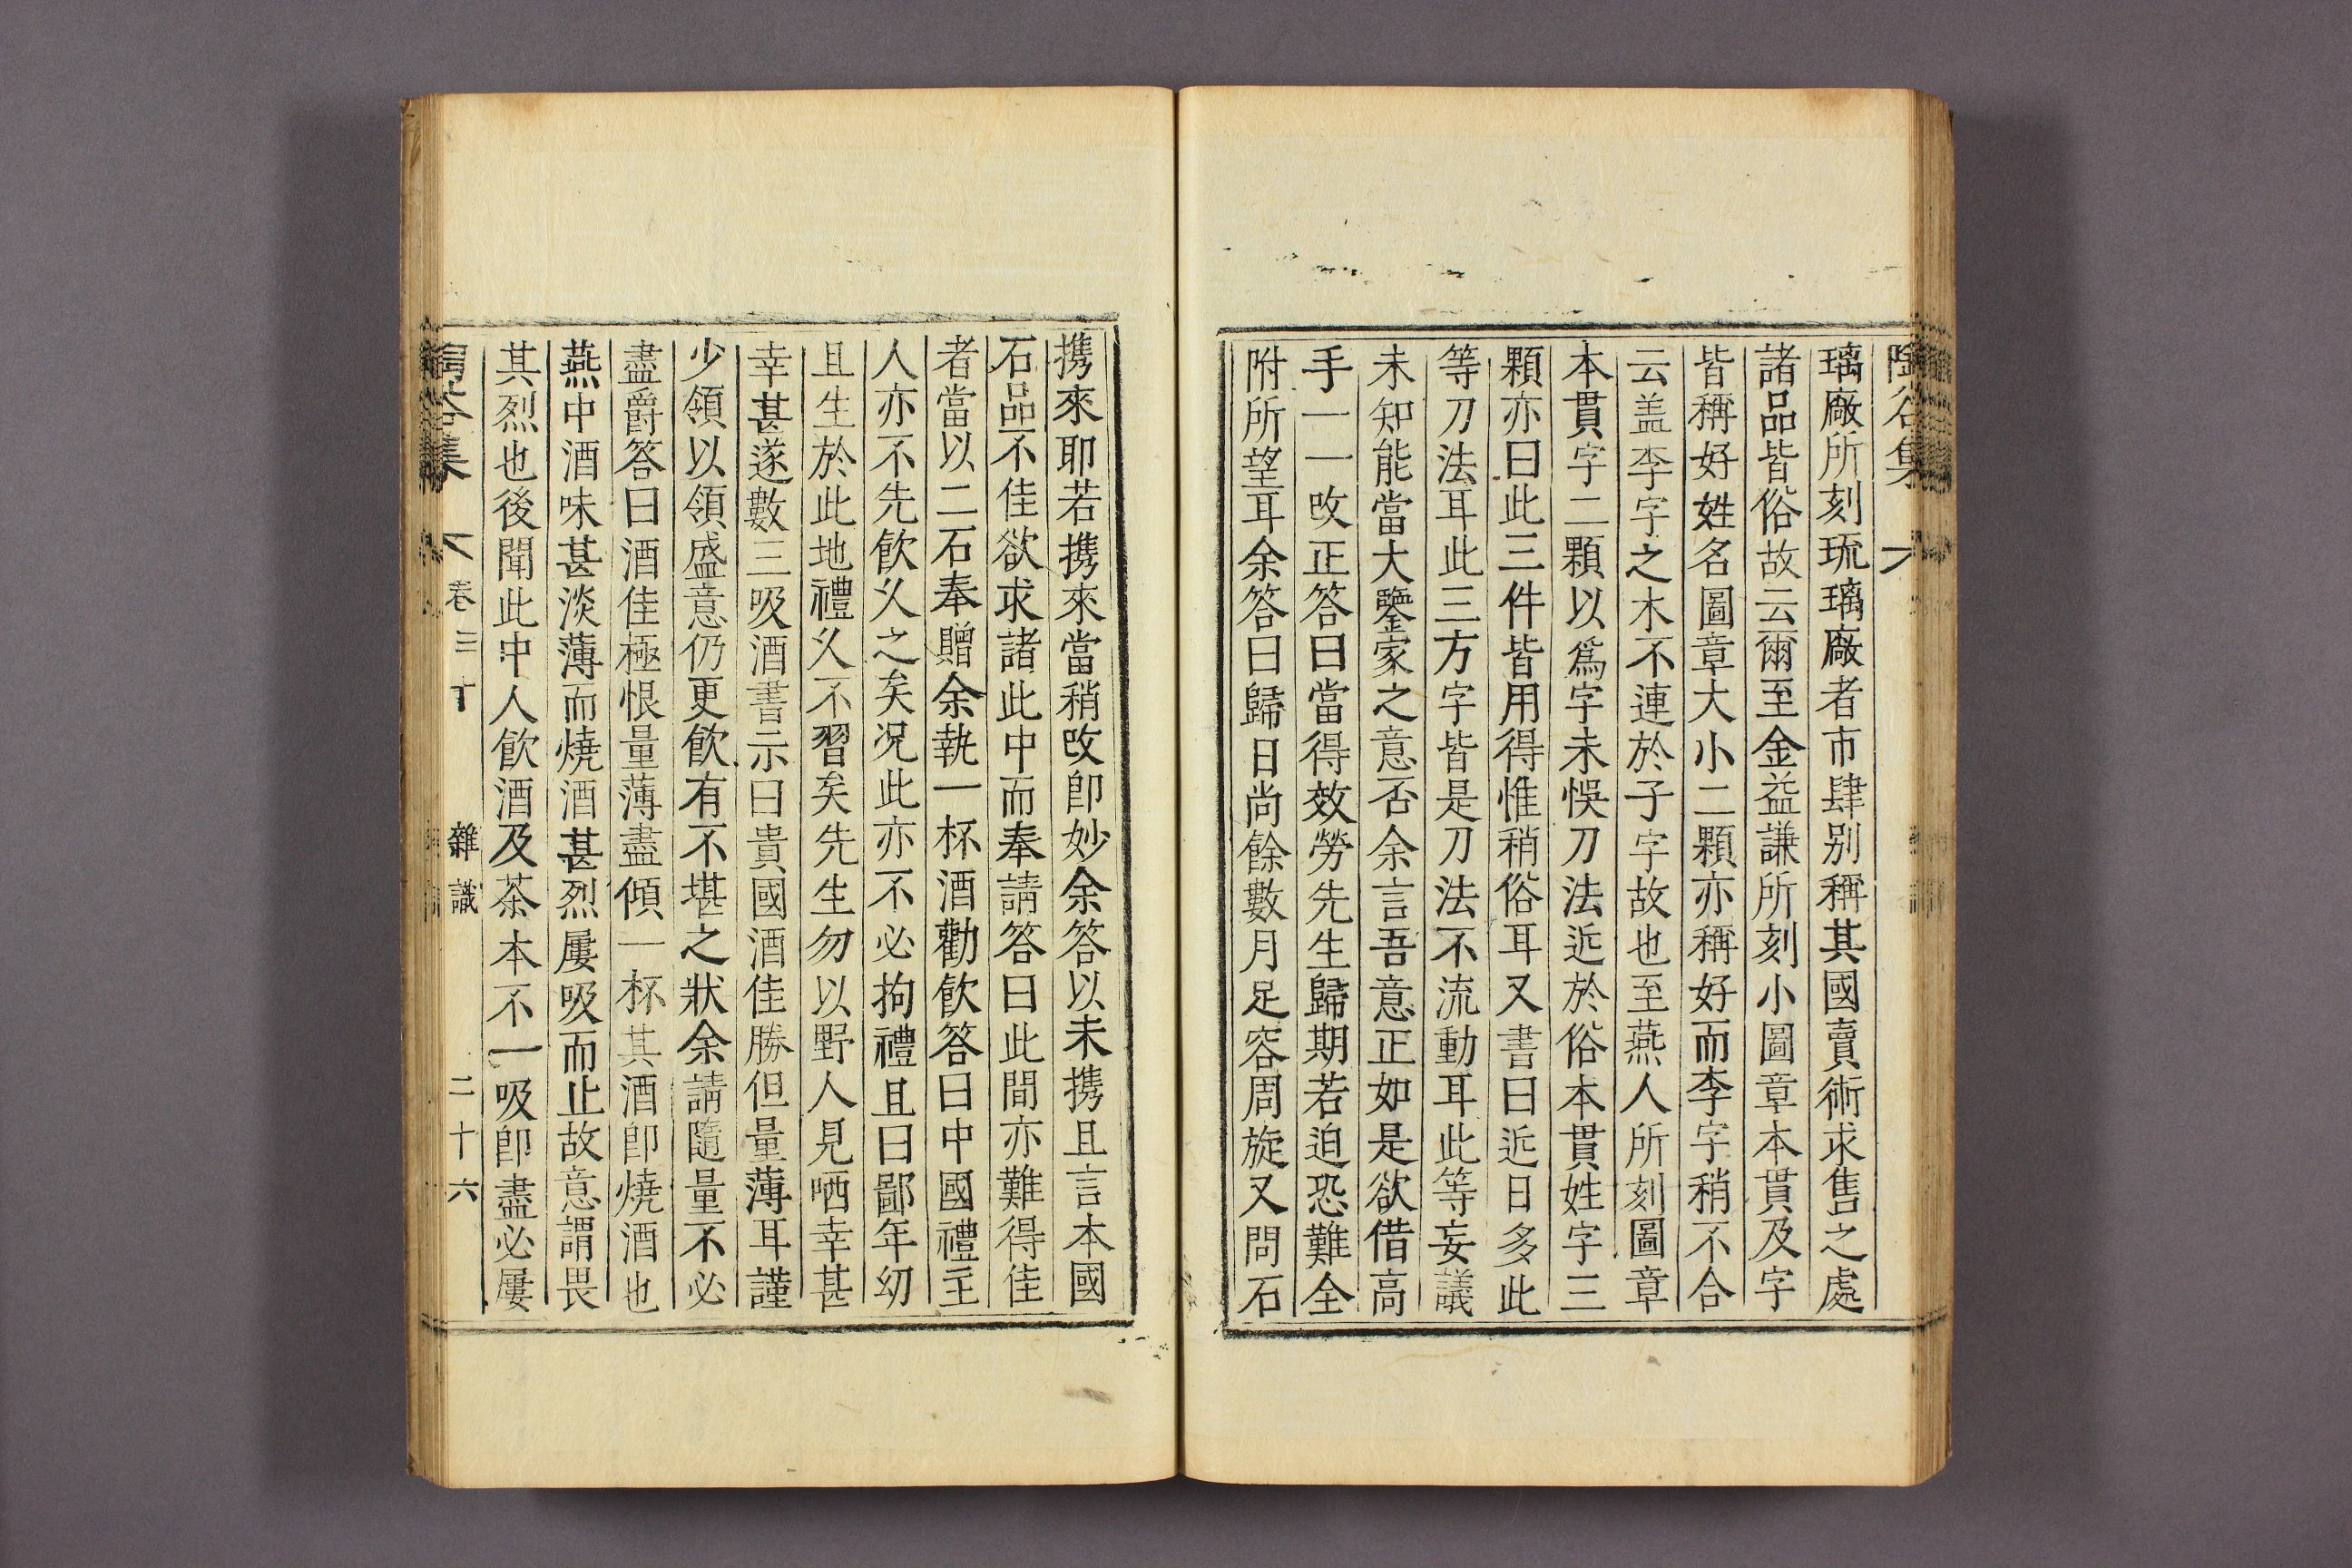 陶谷集
璃廠所刻琉璃廠者市肆别稱其國賣術求售之處
諸品皆俗故云爾至金益謙所刻小圖章本貫及字
皆稱好姓名圖章大小二顆亦稱好而李字稍不合
云盖李字之木不連於子字故也至燕人所刻圖章
本貫字二顆以爲字未悞刀法近於俗本貫姓字三
顆亦曰此三件皆用得惟稍俗耳又書曰近日多此
等刀法耳此三方字皆是刀法不流動耳此等妄議
未知能當大鑒家之意否余言吾意正如是欲借高
手一一改正答曰當得效勞先生歸期若迫恐難全
附所望耳余答曰歸日尚餘數月足容周旋又問石
携來耶若携來當稍改卽妙余答以未携且言本國
石品不佳欲求諸此中而奉請答曰此間亦難得佳
者當以二石奉贈余執一杯酒勸飮答曰中國禮主
人亦不先飮乆之矣况此亦不必拘禮且曰鄙年幼
且生於此地禮乆不習矣先生勿以野人見哂幸甚
幸甚遂數三吸酒書示曰貴國酒佳勝但量薄耳謹
少領以領盛意仍更飮有不堪之狀余請隨量不必
盡爵答曰酒佳極恨量薄盡傾一杯其酒卽燒酒也
燕中酒味甚淡薄而燒酒甚烈屢吸而止故意謂畏
其烈也後聞此中人飮酒及茶本不一吸卽盡必屢
陶谷集 卷三十 雜識 二十六